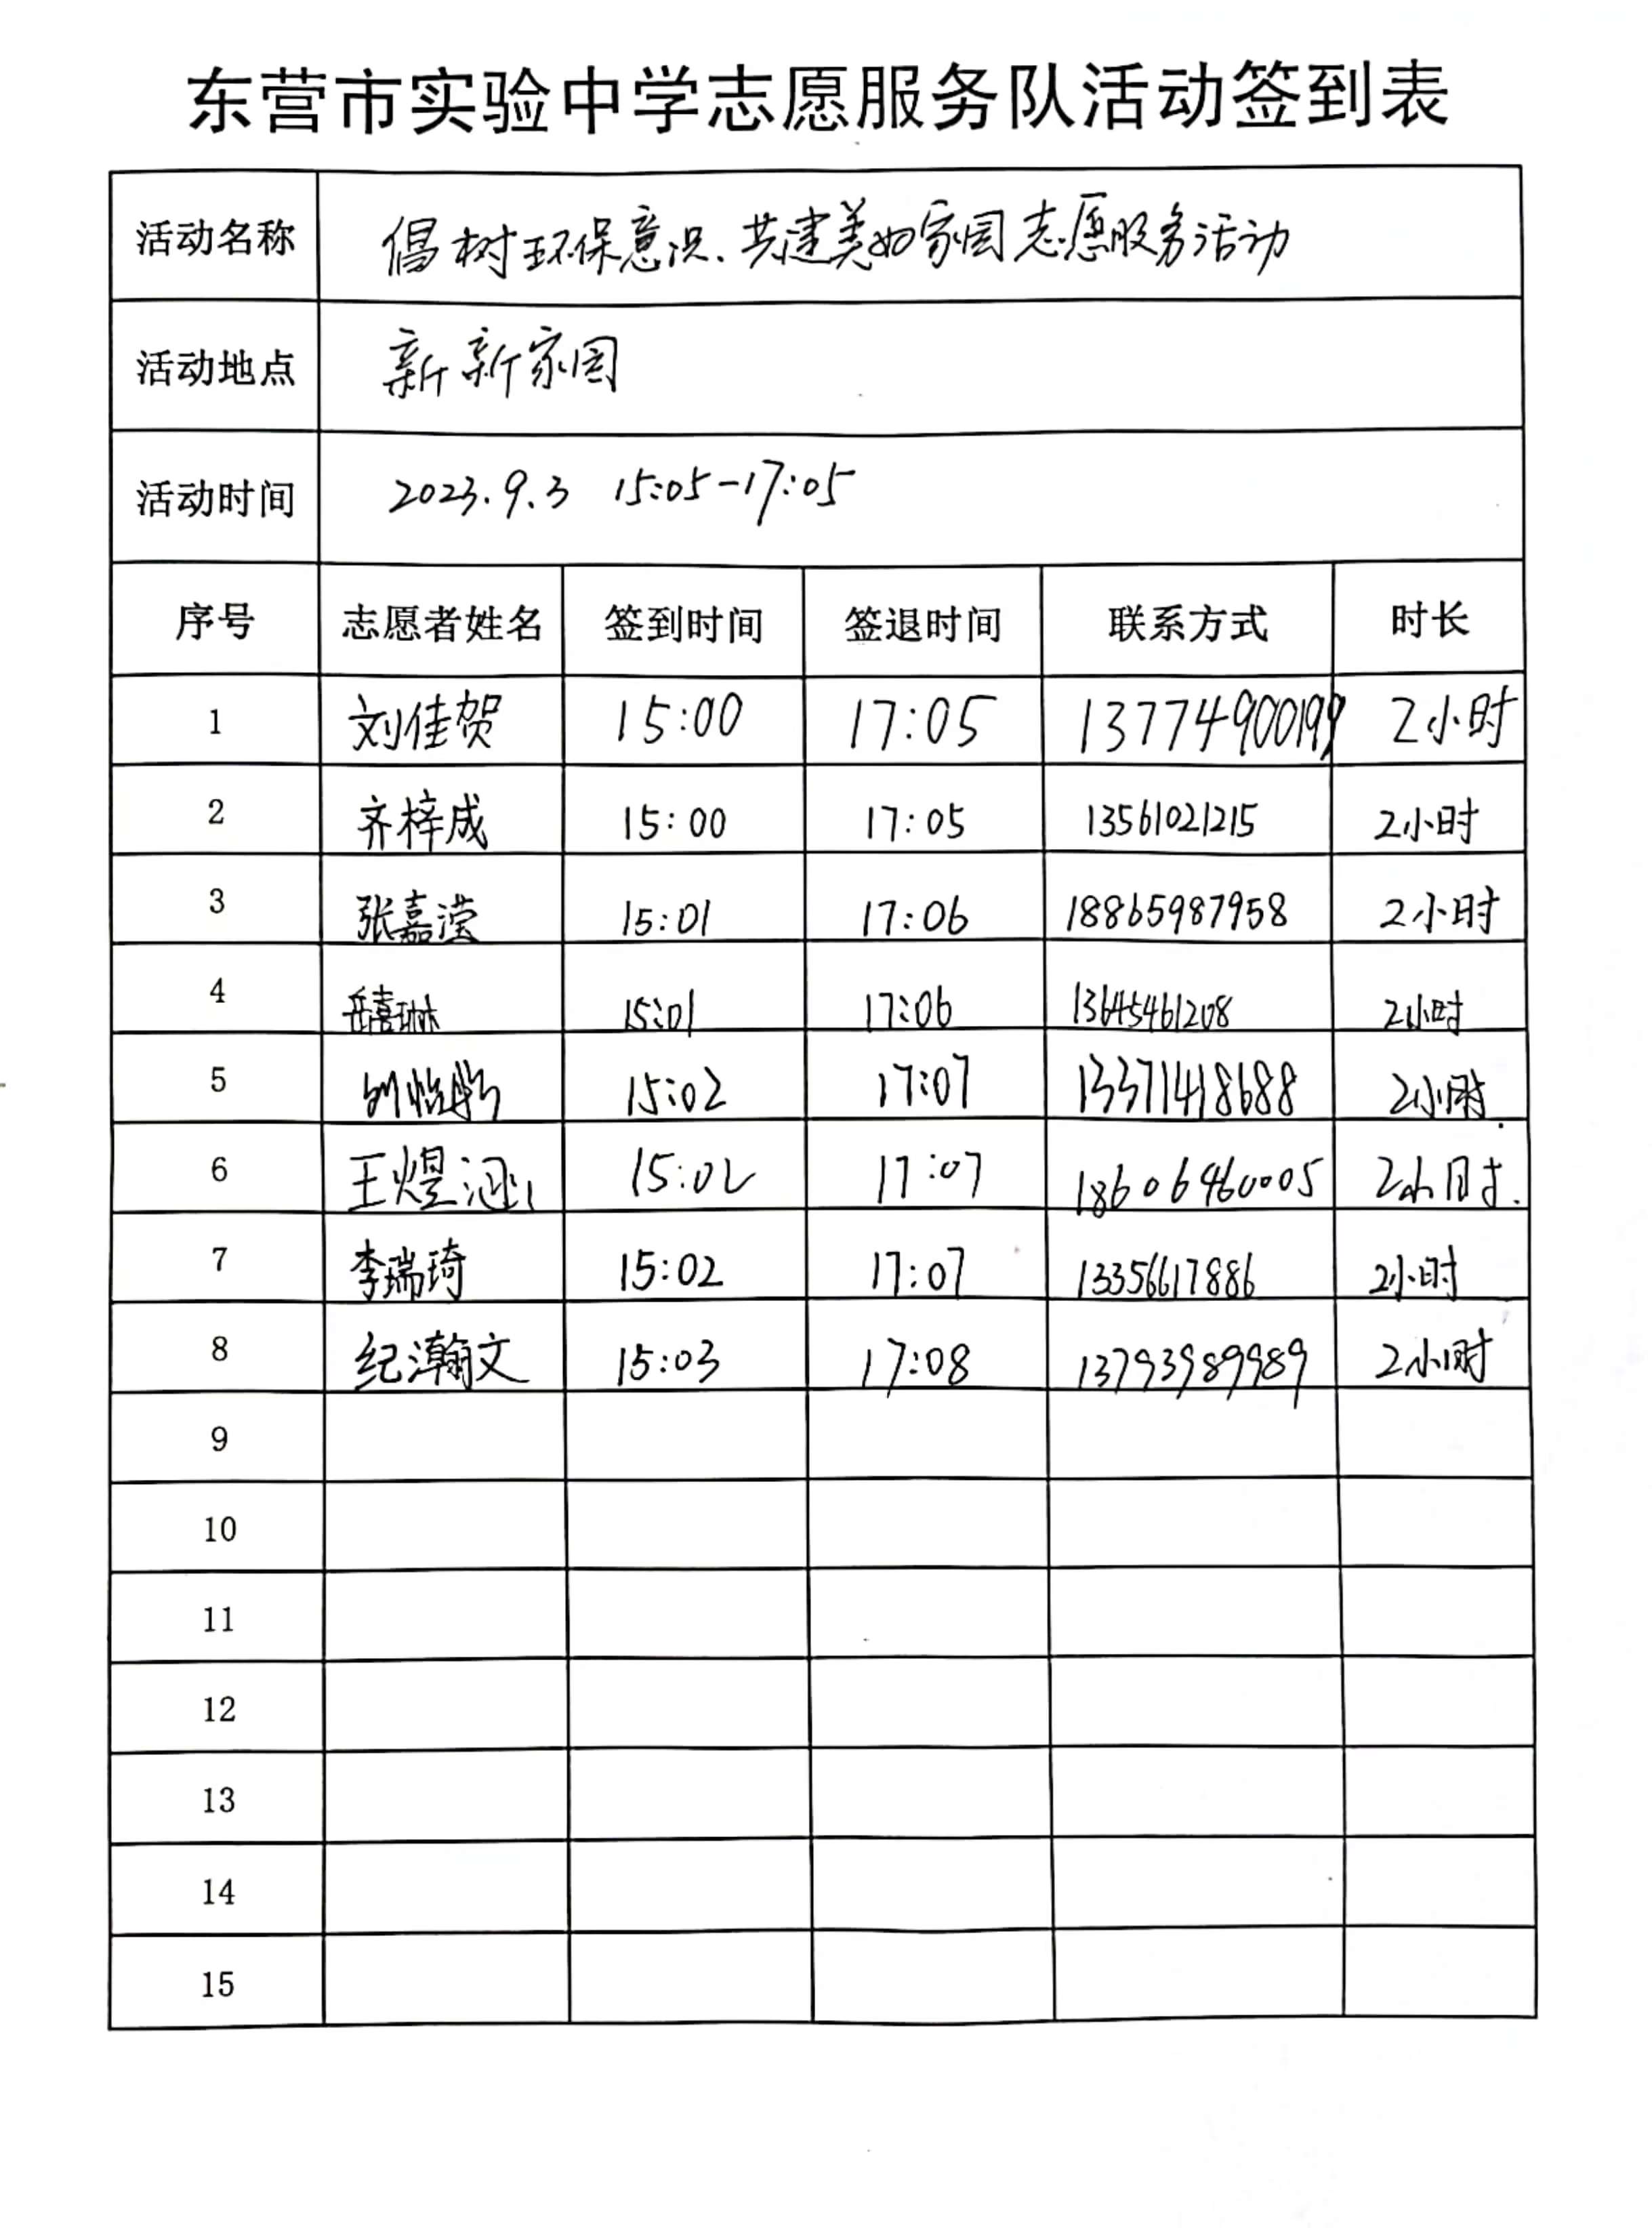 东营市实验中学志愿服务队活动签到表
活动名称 倡树环保意识、共建美好家园志愿服务活动
活动地点 新新家园
活动时间 2023.9.3 15:05-17:05
序号 志愿者姓名 签到时间 签退时间 联系方式 时长
1 刘佳贺 15:00 17:05 13774900199 2小时
2 齐梓成 15:00 17:05 13561021215 2小时
3 张嘉滢 15:01 17:06 18865987958 2小时
4 岳喜琳 15:01 17:06 13645461208 2小时
5 刘 15:02 17:07 13371418688 2小时
6 王煜涵 15:02 17:07 18606460005 2小时.
7 李瑞琦 15:02 17:07 13356617886 2小时
8 纪瀚文 15:03 17:08 13793989989 2小时
9
10
11
12
13
14
15